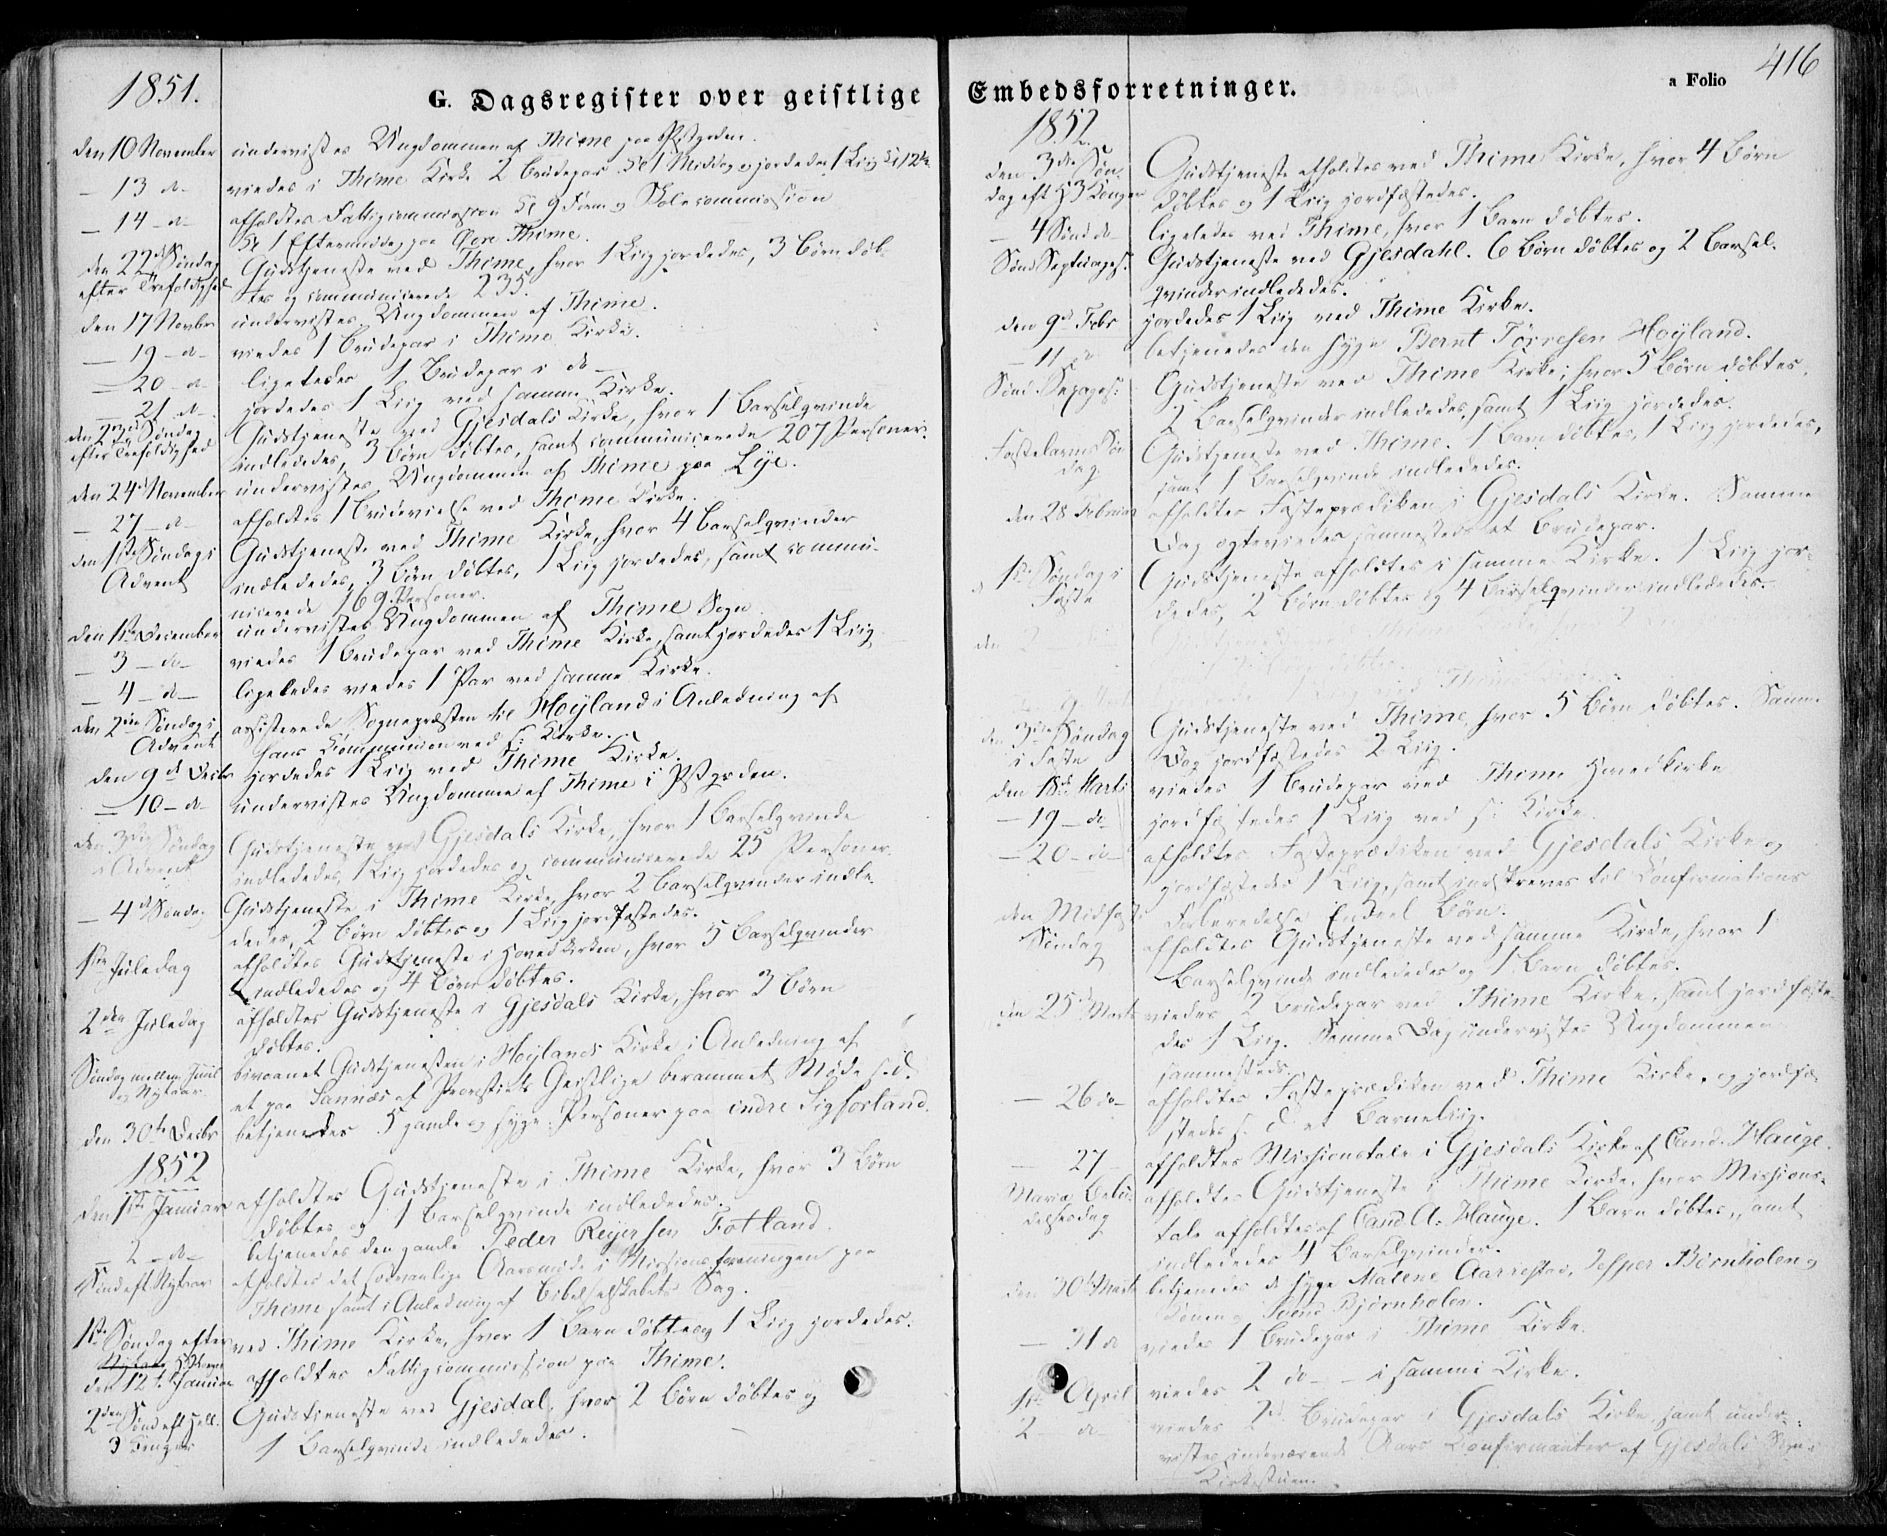 1851.
G. Dagsregister over geistlige
den 10 November undervistes Ungdommen af Thime paa Præstgarden.
— 13 do - viedes i Thime Kirke 2 Brudepar Kl 1 Middag og jordedes 1 Liig Kl 12
— 14 - do - afholdtes Fattigcommission Kl 9 Form. og Skolecommission
Kl 1 Eftermiddag paa Øvre Thime.
den 22de Søndag Gudstjeneste ved Thime, hvor 1 Liig jordedes, 3 Børn døb-
efter Trefoldighed tes og communicerede 235.
den 17 Novbr undervistes Ungdommen af Thime.
— 19 - do - viedes 1 Brudepar i Thime Kirke.
— 20 - do ligeledes 1 Brudepar i do -
— 21 - do - jordedes 1 Liig ved samme Kirke.
den 23de Søndag Gudstjeneste ved Gjesdals Kirke, hvor 1 Barselqvinde
efter Trefoldighed indlededes, 3 Børn døbtes, samt communicerede 207 Personer.
den 24de November undervistes Ungdommen af Thime paa Lye.
— 27 - do - afholdtes 1 Brudevielse ved Thime Kirke.
den 1ste Søndag i Gudstjeneste ved Thime Kirke, hvor 4 Barselqvinder
Advent indlededes, 3 Børn døbtes, 1 Liig jordedes, samt commu-
nicerede 169 Personer.
den 1ste December undervistes Ungdommen af Thime Sogn.
— 3 - do - viedes 1 Brudepar ved Thime Kirke, samt jordedes 1 Liig
— 4 - do - ligeledes viedes 1 Par ved samme Kirke.
den 2den Søndag i assisterede Sognepræsten til Høyland i Anledning af
Advent hans Communion ved s. Kirke.
den 9de Decbr jordedes 1 Liig ved Thime Kirke.
— 10 - do - undervistes Ungdommen af Thime i Pstgrden.
den 3die Søndag Gudstjeneste ved Gjesdals Kirke, hvor 1 Barselqvinde
i Advent indlededes, 1 Liig jordedes og communicerede 25 Personer.
— 4de Søndag Gudstjeneste i Thime Kirke, hvor 2 Barselqvinder indle-
dedes, 2 Børn døbtes og 1 Liig jordfæstedes.
1ste Juledag afholdtes Gudstjeneste i Hovedkirken, hvor 5 Barselqvinder
indlededes og 4 Børn døbtes.
2den Juledag afholdtes Gudstjeneste i Gjesdals Kirke, hvor 3 Børn
døbtes.
Søndag mellem Juul bivaanet Gudstjenesten i Høylands Kirke i Anledning af
og Nytaar et paa Sannæs af Provstiets Geistlige berammet Møde s. d.
den 30te Decbr betjenedes 5 gamle og syge Personer paa indre Sigforland.
1852
den 1ste Januar afholdtes Gudstjeneste i Thime Kirke, hvor 3 Børn
døbtes og 1 Barselqvinde indlededes.
— 2 - do - betjenedes den gamle Peder Reiersen Fotland.
Sønd eft Nytaar afholdtes det sedvanlige Aarsmøde i Missionsforeningen paa
Thime samt i Anledning af Bibelselskabets Sag.
1ste Søndag efter ved Thime Kirke, hvor 1 Barn døbtes og 1 Liig jordedes.
den 12te Januar afholdtes Fattigcommission paa Thime.
2den Sønd eft Hell. Gudstjeneste ved Gjesdal, hvor 2 Børn døbtes og
3 Konger 1 Barselqvinde indlededes.
Embedsforretninger.
a Folio 416
1852.
den 3die Søn- Gudstjeneste afholdtes ved Thime Kirke, hvor 4 Børn
dag eft H 3 Konger døbtes og 1 Liig jordfæstedes.
— 4 Sønd do - ligeledes ved Thime, hvor 1 Barn døbtes.
Sønd Septuages: Gudstjeneste ved Gjesdahl. 6 Børn døbtes og 2 Barsel-
qvinder indlededes.
den 9de Febr jordedes 1 Liig ved Thime Kirke.
— 11 do betjenedes den syge Bernt Tørresen Høyland.
Sønd. Sexages: Gudstjeneste ved Thime Kirke; hvor 5 Børn døbtes,
2 Barselqvinder indlededes, samt 1 Liig jordedes.
Fastelavns Søn Gudstjeneste ved Thime. 1 Barn døbtes, 1 Liig jordedes,
dag samt 1 Barselqvinde indlededes.
den 28 Februar afholdtes Fasteprædiken i Gjesdals Kirke. Samme
Dag ægteviedes sammesteds et Brudepar.
1ste Søndag i Gudstjeneste afholdtes i samme Kirke. 1 Liig jor-
Faste dedes, 2 Børn døbtes og 4 Barselqvinder indlededes.
den
den 3die Søndag Gudstjeneste ved Thime, hvor 5 Børn døbtes. Samme
i Faste Dag jordfæstedes 2 Liig.
den 18de Marts viedes 1 Brudepar ved Thime Hovedkirke
— 19 - do jordfæstedes 1 Liig ved s: Kirke
— 20 - do - afholdtes Fasteprædiken ved Gjesdals Kirke og
jordfæstedes 1 Liig, samt indskreves til Confirmations
Forberedelse Endeel Børn.
den Midfaste afholdtes Gudstjeneste ved samme Kirke, hvor 1
Søndag Barselqvinde indlededes og 1 Barn døbtes.
den 25de Marts viedes 2 Brudepar ved Thime Kirke, samt jordfæste-
des 1 Liig. Samme Dag undervistes Ungdommen
sammesteds.
— 26 do - afholdtes Fasteprædiken ved Thime Kirke, og jordfæ-
stedes s. d. et Barneliig.
— 27 - afholdtes Missionstale i Gjesdals Kirke af Cand. Hauge.
Mariæ Bebu- afholdtes Gudstjeneste i Thime Kirke, hvor Missions-
delsesdag tale afholdtes af Cand. A. Hauge. 1 Barn døbtes, samt
indlededes 4 Barselqvinder.
den 30te Marts betjenedes de syge Malene Aarrestad, Jesper Bjørnholen og
Konen Svend Bjørnholen.
— 31 do viedes 1 Brudepar i Thime Kirke.
1ste April viedes 2 do - - i samme Kirke.
2 - do - viedes 2de Brudepar i Gjesdals Kirke, samt under-
vistes indeværende Aars Confirmanter af Gjesdals Sogn i
Kirkestuen.